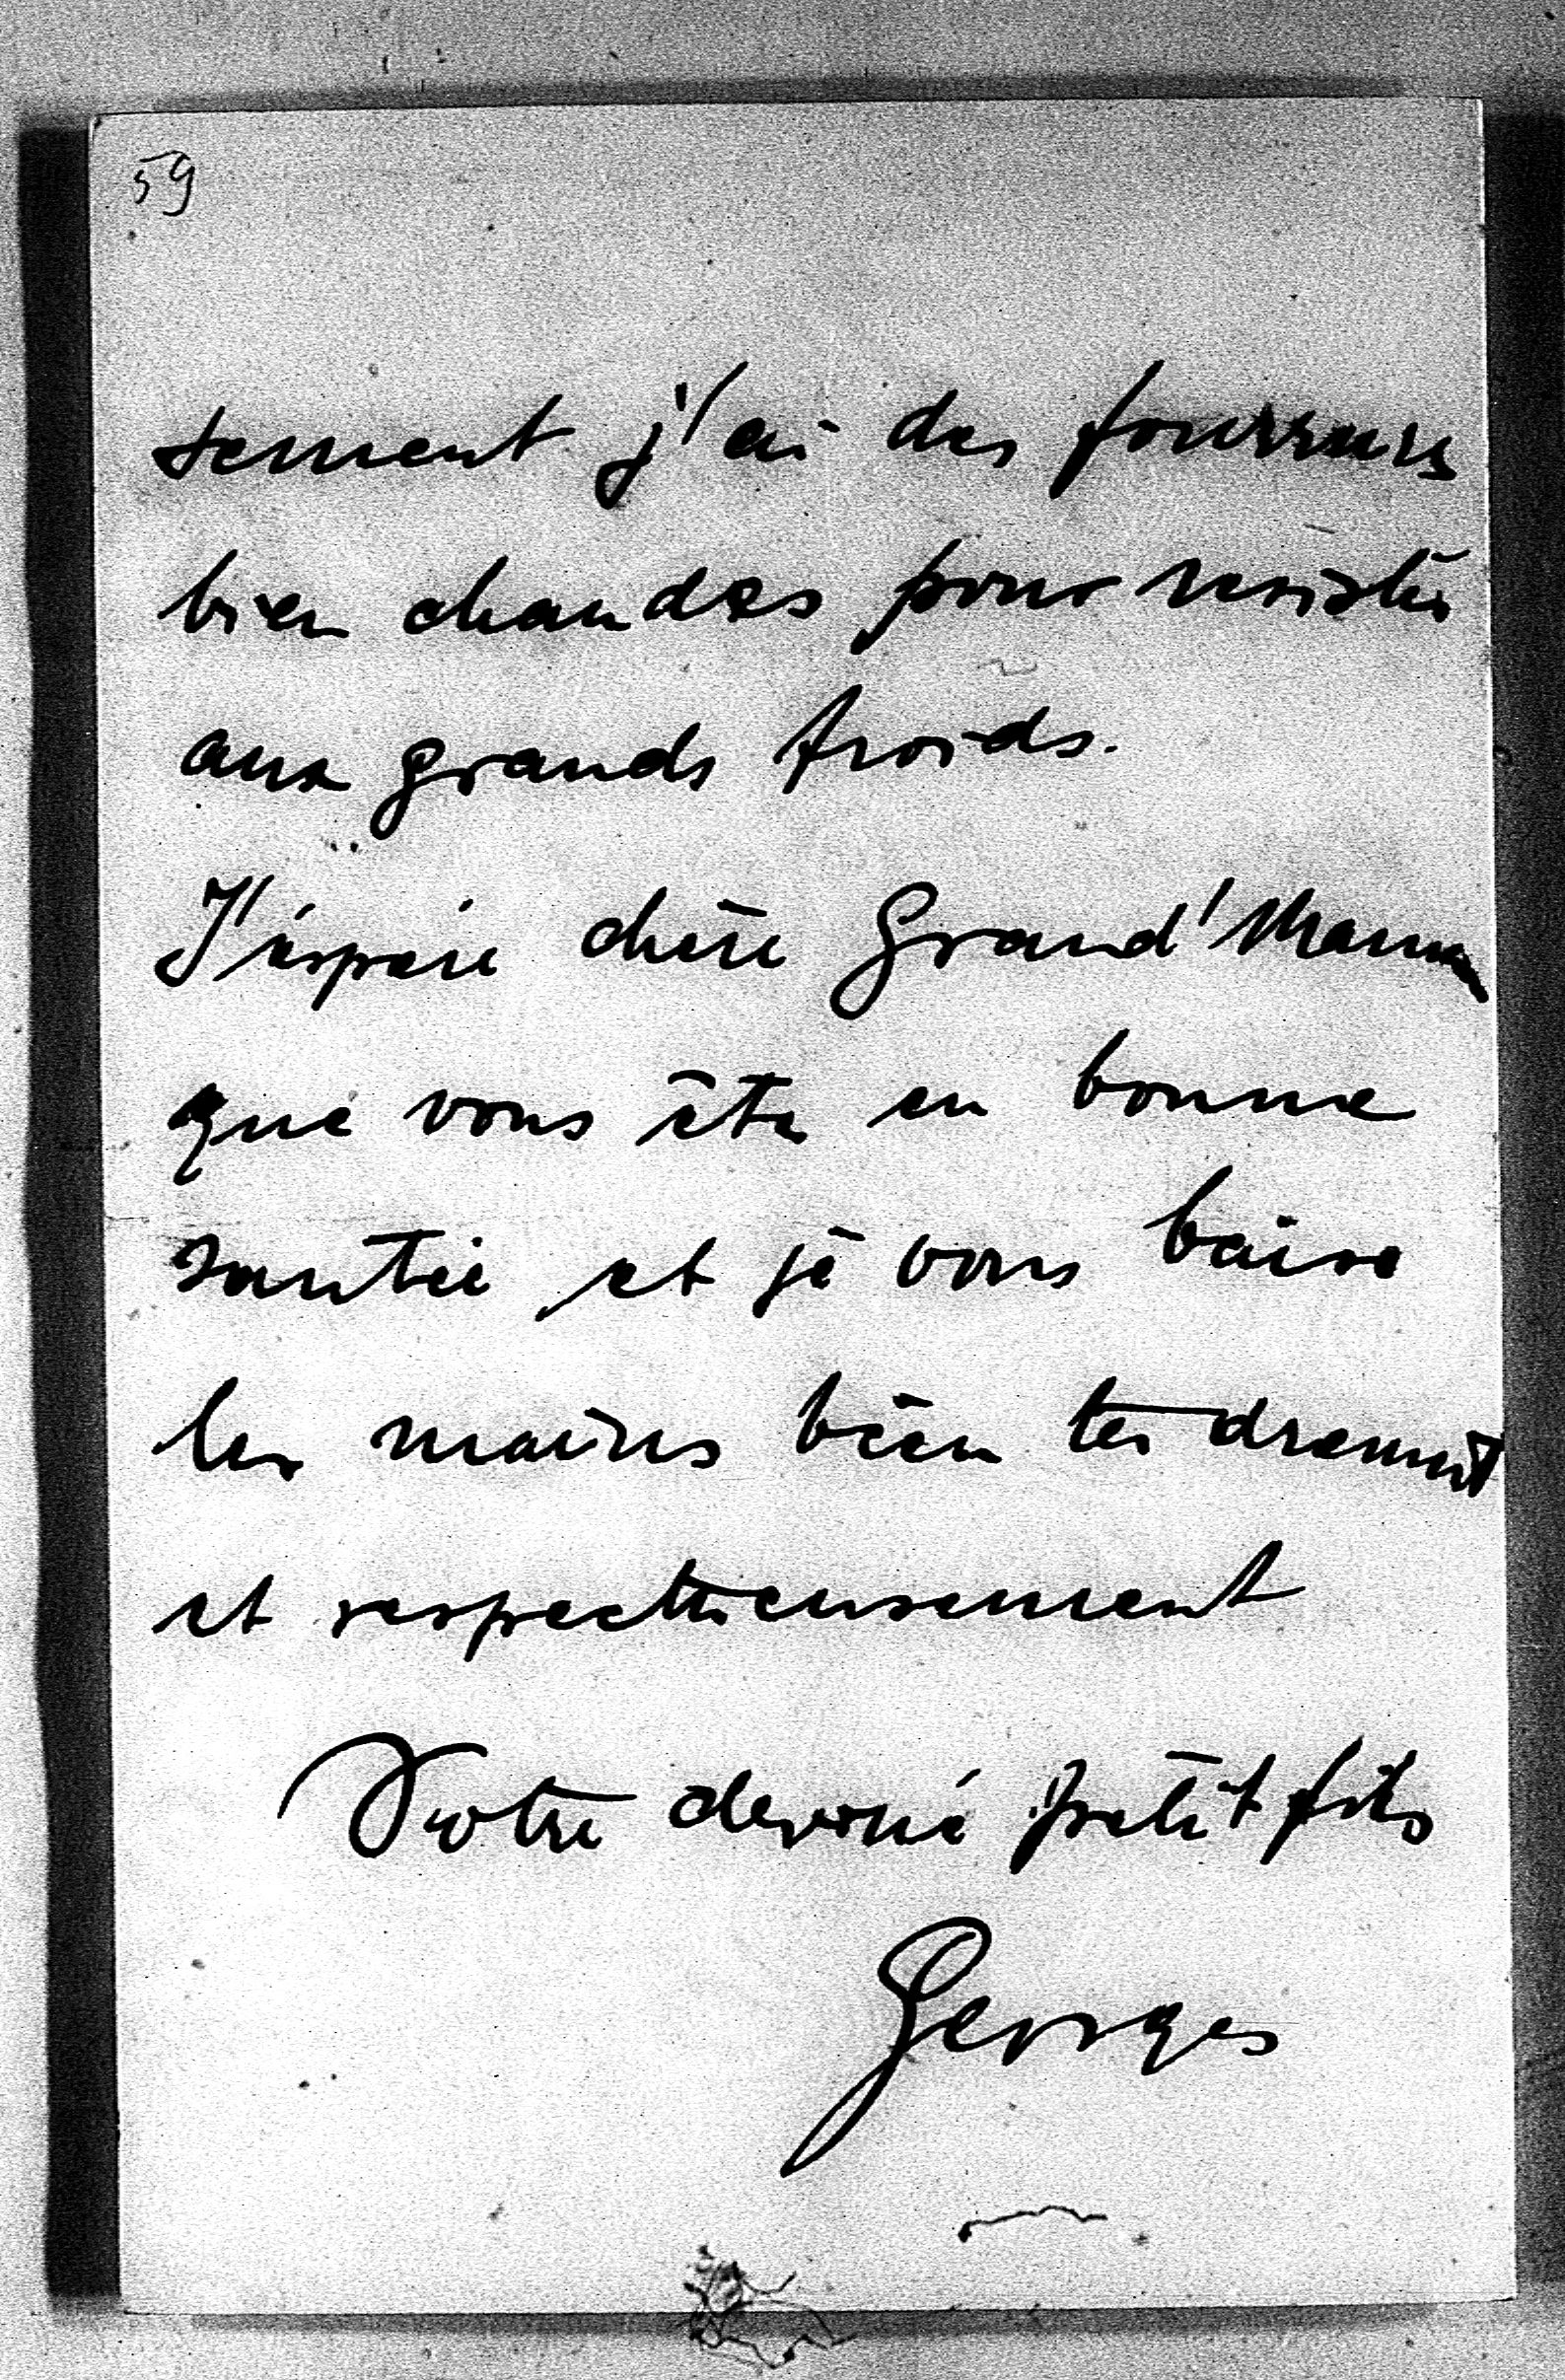 59
sement j'ai des fourrures
bien chaudes pour resister
aux grands froids.
J'éspère chère Grand'Maman
que vous êtes en bonne
santée et je vous baise
les mains bien tendrement
et respectueusement
Votre devoué petit fils
Georges